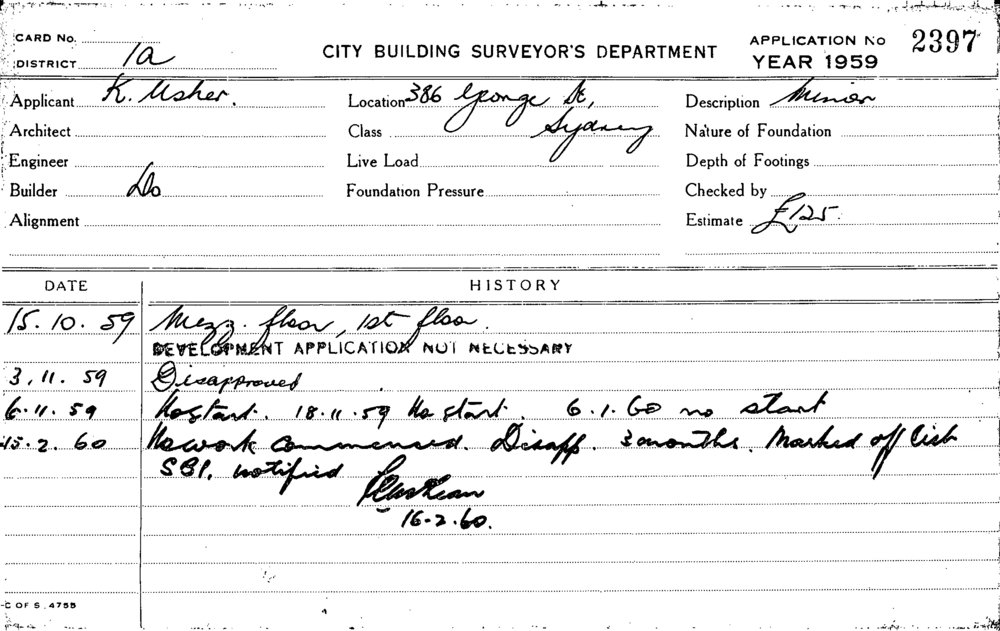 CARD No.
DISTRICT 1a
CITY BUILDING SURVEYOR'S DEPARTMENT
APPLICATION No 2397
YEAR 1959
Applicant K. Usher.
Location 386 George St,
Description Minor
Architect
Class Sydney
Nature of Foundation
Engineer
Live Load
Depth of Footings
Builder Do
Foundation Pressure
Checked by
Alignment
Estimate £125.
DATE HISTORY
15.10.59 Mezz. floor, 1st floor.
DEVELOPMENT APPLICATION NOT NECESSARY
3.11.59 Disapproved
6.11.59 No start. 18.11.59 No start. 6.1.60 no start
15.2.60 No work commenced. Disapp. 3 months. Marked off list
SBI. notified
16-2-60.
C OF S. 4755